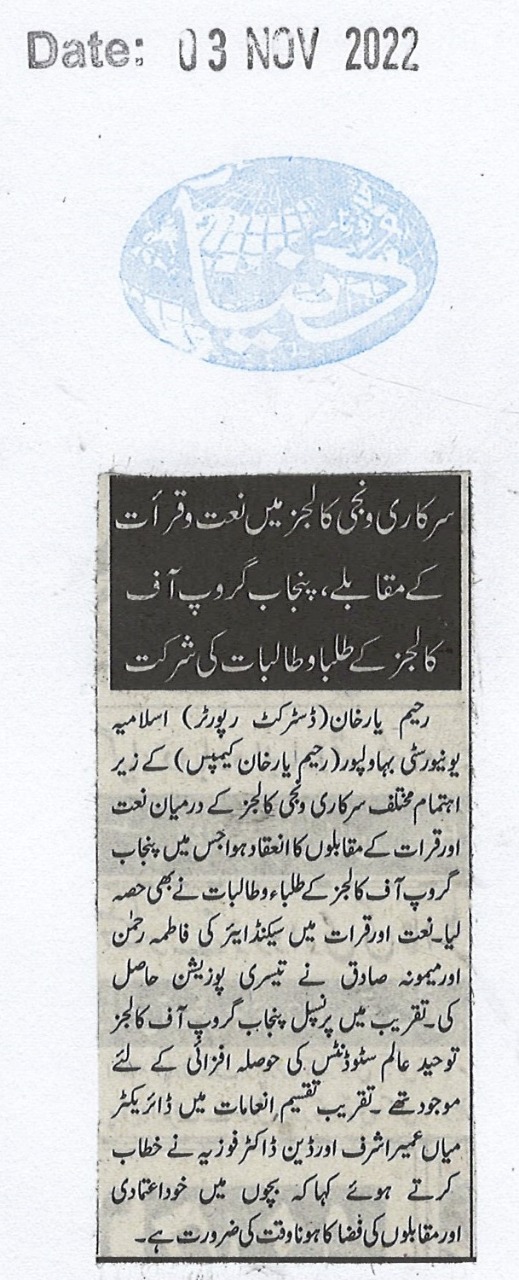 Date: 03 NOV 2022
دنیا
سرکاری ونجی کالجز میں نعت وقرأت
کے مقابلے، پنجاب گروپ آف
کالجز کے طلبا وطالبات کی شرکت
رحیم یارخان (ڈسٹرکٹ رپورٹر) اسلامیہ
یونیورسٹی بہاولپور (رحیم یارخان کیمپس) کے زیر
اہتمام مختلف سرکاری ونجی کالجز کے درمیان نعت
اور قرات کے مقابلوں کا انعقاد ہوا جس میں پنجاب
گروپ آف کالجز کے طلباء وطالبات نے بھی حصہ
لیا۔ نعت اور قرات میں سیکنڈایئر کی فاطمہ رحمٰن
اور میمونہ صادق نے تیسری پوزیشن حاصل
کی۔ تقریب میں پرنسپل پنجاب گروپ آف کالجز
توحید عالم سٹوڈنٹس کی حوصلہ افزائی کے لئے
موجود تھے۔ تقریب تقسیم انعامات میں ڈائریکٹر
میاں عمیر اشرف اور ڈین ڈاکٹر فوزیہ نے خطاب
کرتے ہوئے کہا کہ بچوں میں خود اعتمادی
اور مقابلوں کی فضا کا ہونا وقت کی ضرورت ہے۔